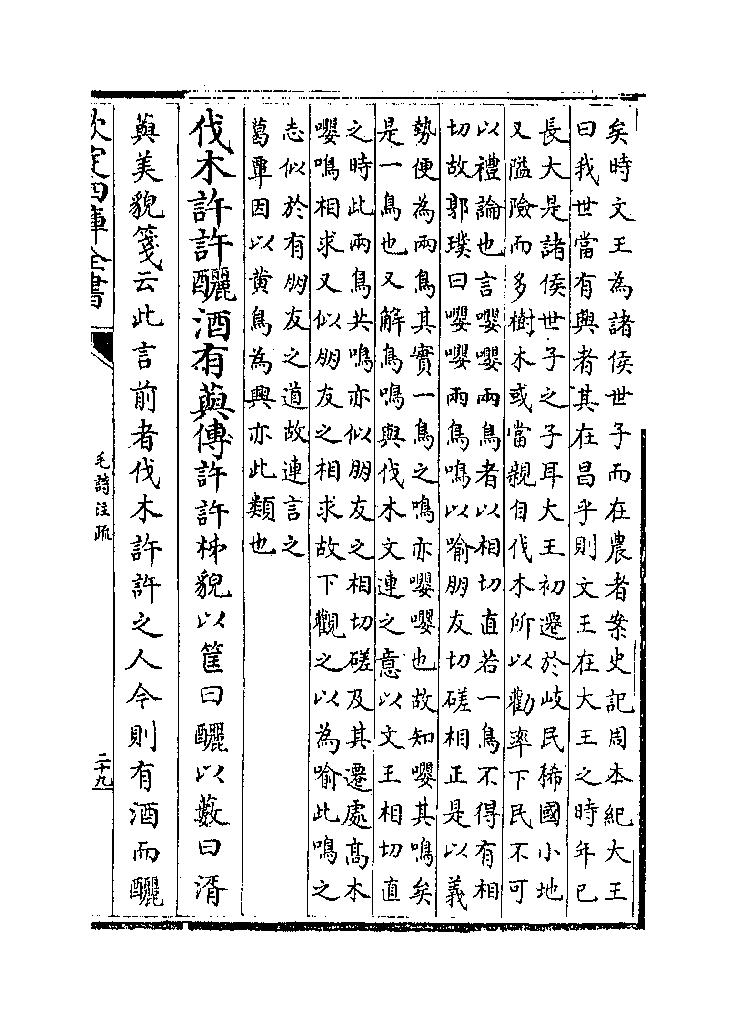 矣時文王為諸侯世子而在農者案史記周本紀大王
曰我世當有興者其在昌乎則文王在大王之時年已
長大是諸侯世子之子耳大王初遷於岐民稀國小地
又隘險而多樹木或當親自伐木所以勸率下民不可
以禮論也言嚶嚶兩鳥者以相切直若一鳥不得有相
切故郭璞曰嚶嚶兩鳥鳴以喻朋友切磋相正是以義
勢便為兩鳥其實一鳥之鳴亦嚶嚶也故知嚶其鳴矣
是一鳥也又解鳥鳴與伐木文連之意以文王相切直
之時此兩鳥共鳴亦似朋友之相切磋及其遷處髙木
嚶鳴相求又似朋友之相求故下觀之以為喻此鳴之
志似於有朋友之道故連言之
葛覃因以黄鳥為興亦此類也
伐木許許釃酒有藇傳許許柹貌以筐曰釃以藪曰湑
藇美貌箋云此言前者伐木許許之人今則有酒而釃
欽定四庫全書
毛詩注疏
二十九